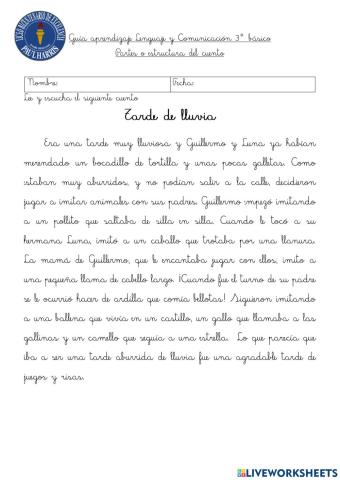 LICEO BICENTENARIO DE EXCELENCIA
PAUL HARRIS
Guía aprendizaje Lenguaje y Comunicación 3° básico
Partes o estructura del cuento
Nombre: Fecha:
Lee y escucha el siguiente cuento
Tarde de lluvia
Era una tarde muy lluviosa y Guillermo y Luna ya habían
merendado un bocadillo de tortilla y unas pocas galletas. Como
estaban muy aburridos, y no podían salir a la calle, decidieron
jugar a imitar animales con sus padres. Guillermo empezó imitando
a un pollito que saltaba de silla en silla. Cuando le tocó a su
hermana Luna, imitó a un caballo que trotaba por una llanura.
La mamá de Guillermo, que le encantaba jugar con ellos, imito a
una pequeña llama de cabello largo. ¡Cuando fue el turno de su padre
se le ocurrió hacer de ardilla que comía bellotas! Siguieron imitando
a una ballena que vivía en un castillo, un gallo que llamaba a las
gallinas y un camello que seguía a una estrella. Lo que parecía que
iba a ser una tarde aburrida de lluvia fue una agradable tarde de
juegos y risas.
LIVEWORKSHEETS